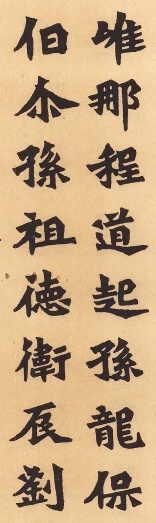 唯那程道起孫龍保
伯尒孫祖徳衛辰劉